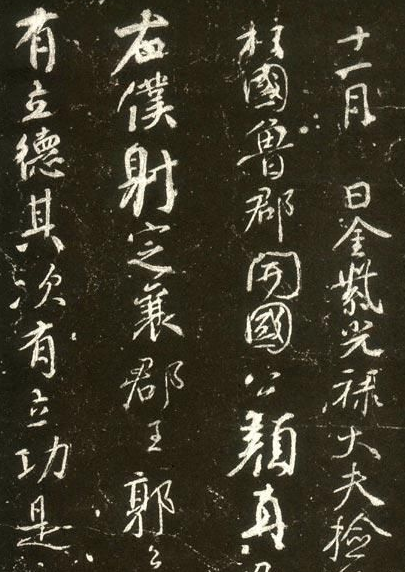 十一月 日金紫光禄大夫檢
柱國魯郡開國公顏真
右僕射定襄郡王郭公
有立德其次有立功是